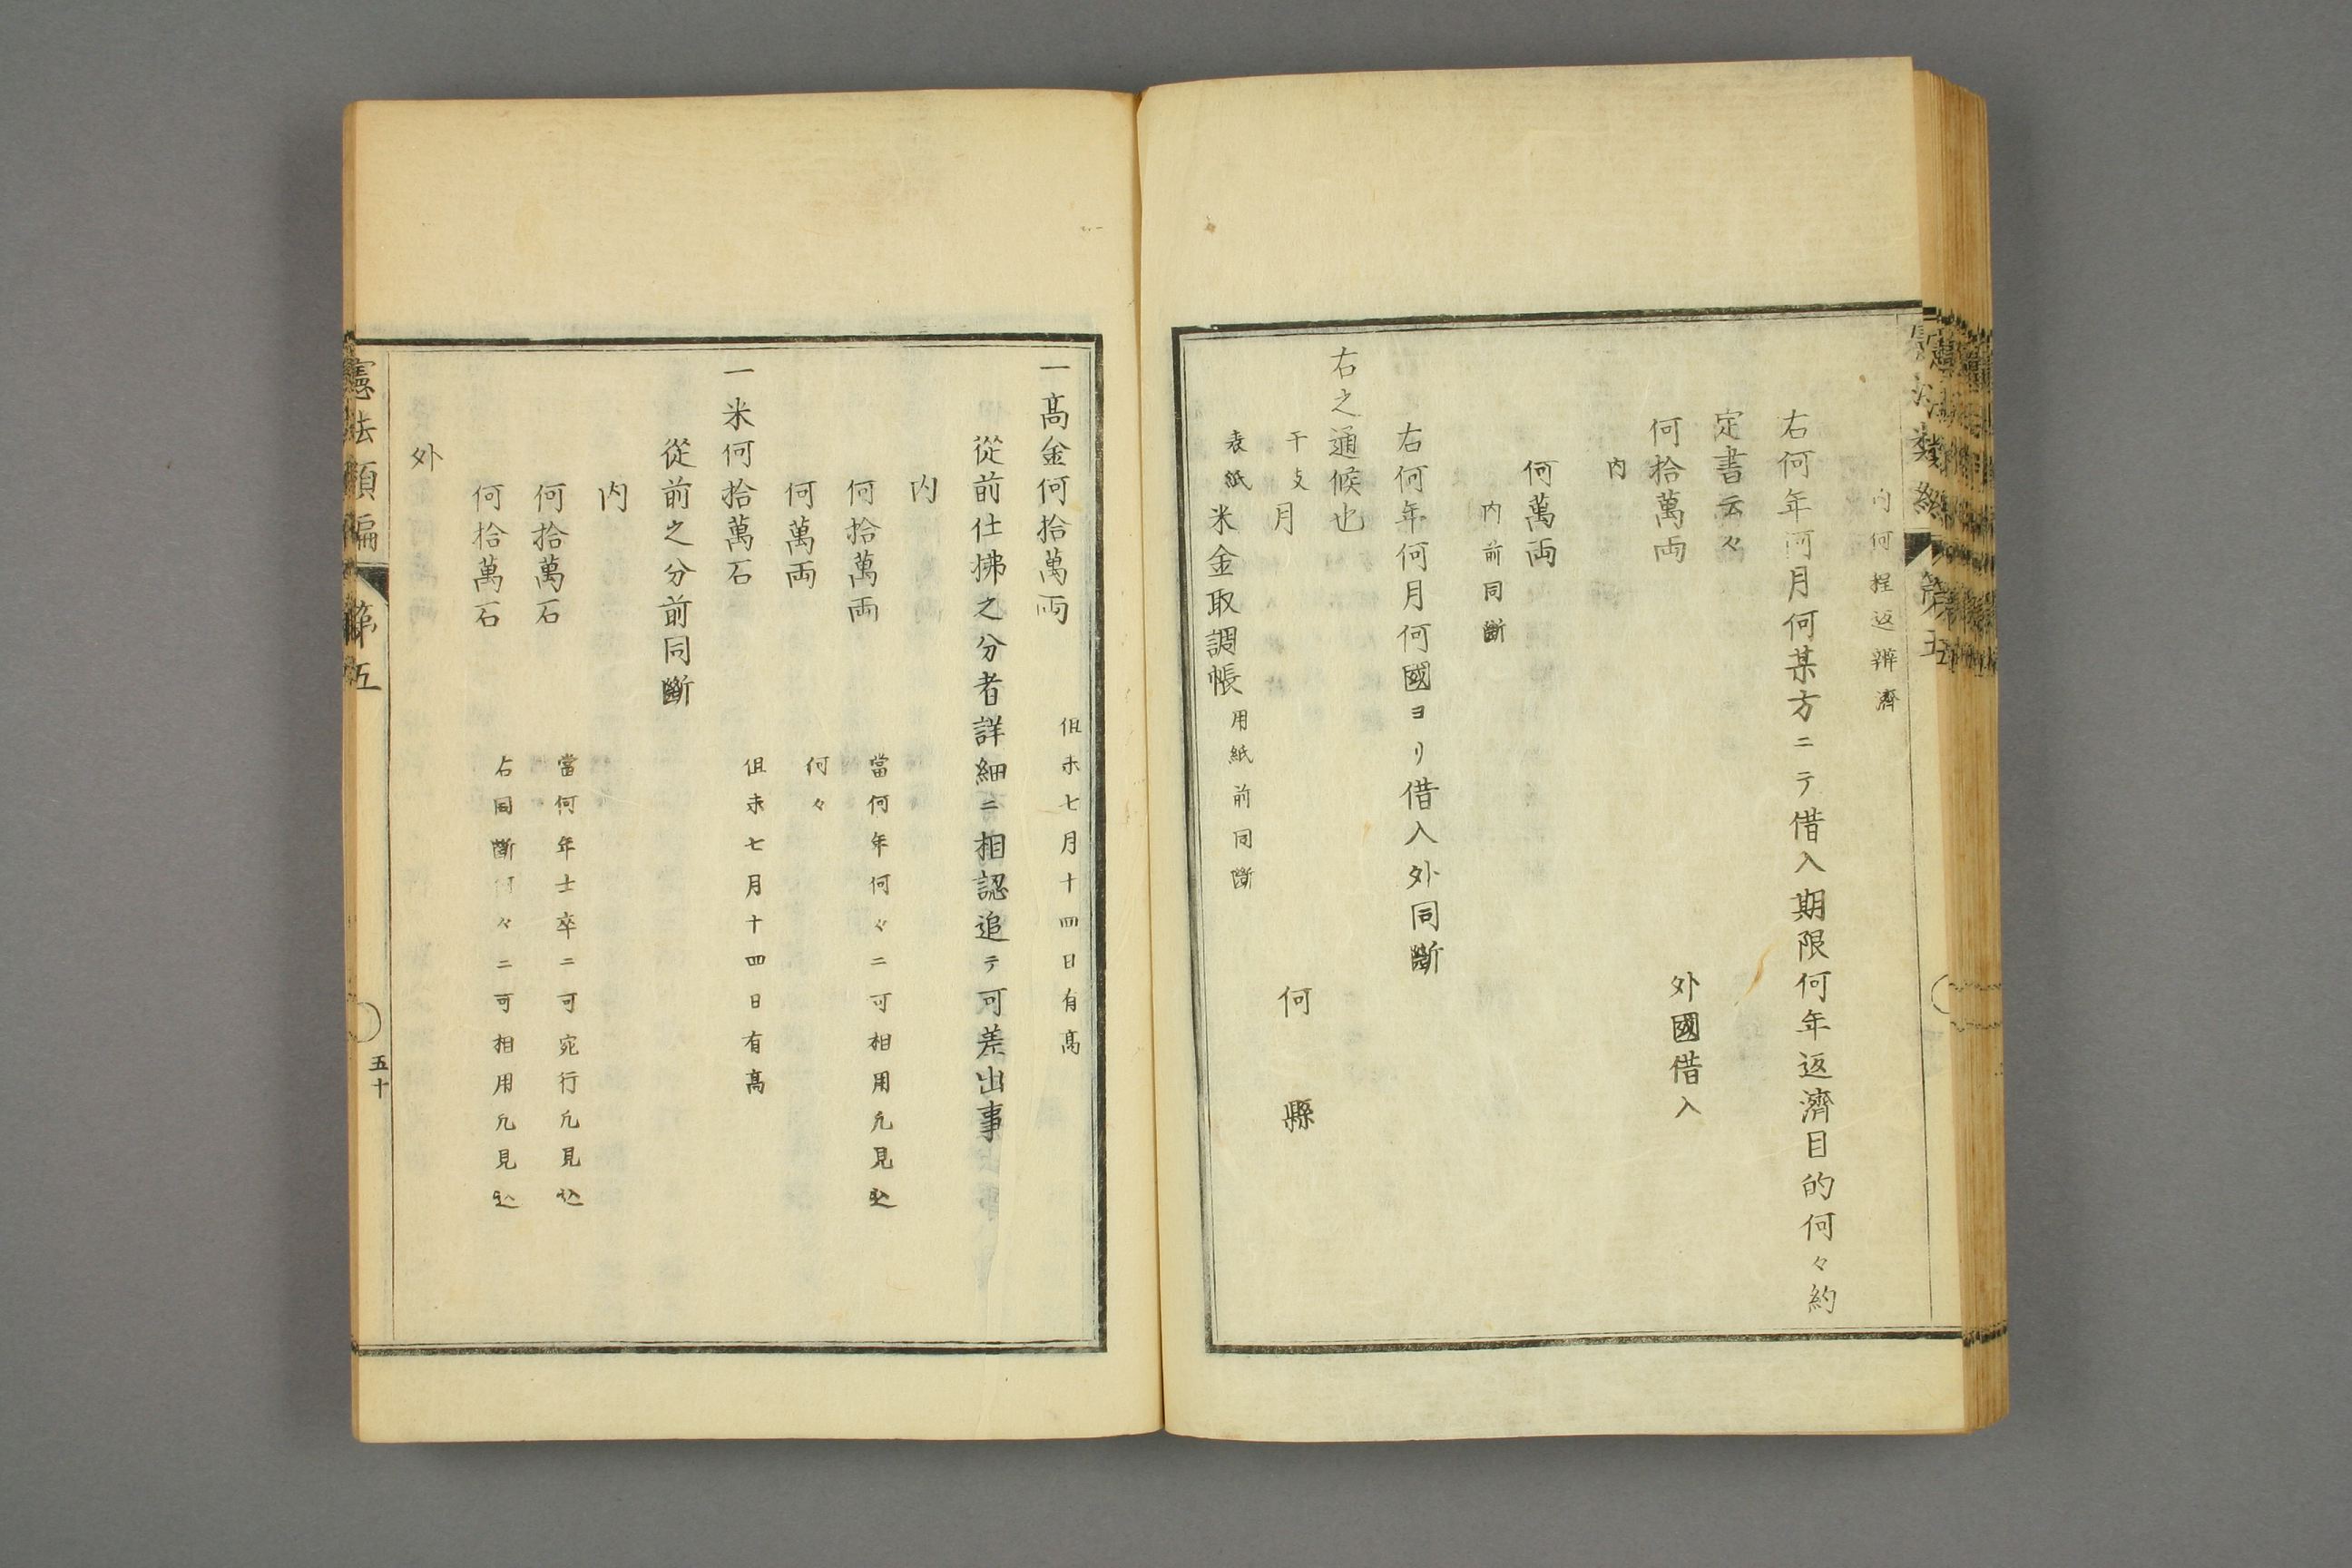 内何程返辨濟
右何年何月何某方ニテ借入期限何年返濟目的何々約
定書云々
何拾萬両 外國借入
内
何萬両
内前同斷
右何年何月何國ヨリ借入外同斷
右之通候也
干支月 何縣
表紙米金取調帳用紙前同斷
憲法類編 第五
一高金何拾萬両 但未七月十四日有高
從前仕拂之分者詳細ニ相認追テ可差出事
内
何拾萬両 當何年何々ニ可相用凢見込
何萬両 何々
一米何拾萬石 但未七月十四日有高
從前之分前同斷
内
何拾萬石 當何年士卒ニ可宛行凢見込
何拾萬石 右同斷何々ニ可相用凢見込
外
憲法類編 第五 五十